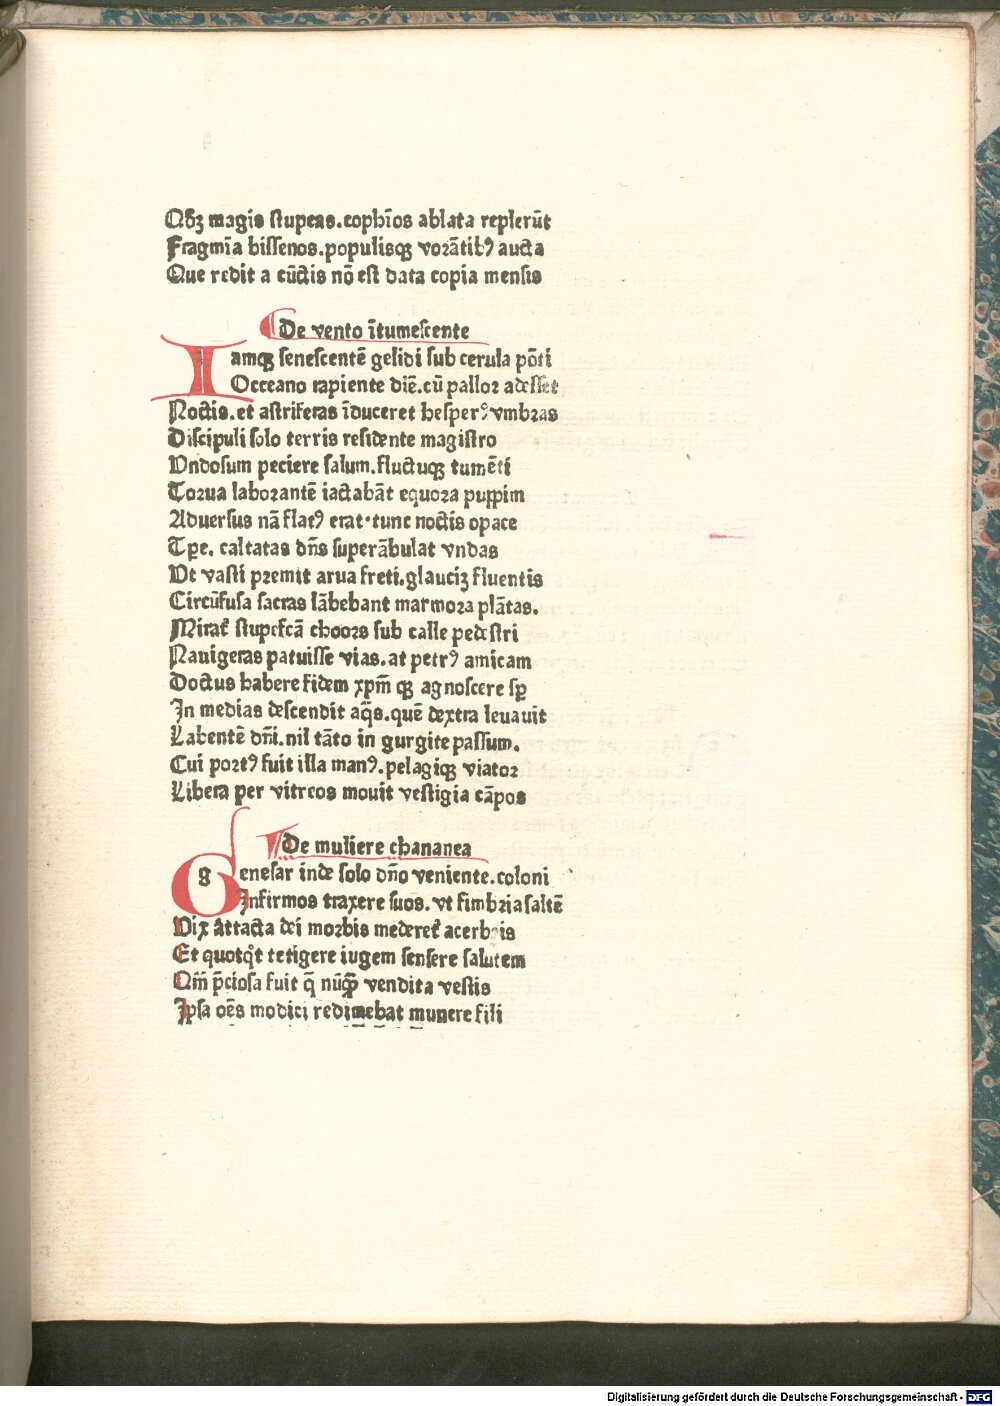 Qdꝫ magis stupeas.cophīos ablata replerūt
Fragmīa bissenos.populisqꝫ vorātibꝰ aucta
Que redit a cūctis nō est data copia mensis
De vento ītumescente
Iamqꝫ senescentē gelidi sub cerula pōti
Occeano rapiente diē.cū pallor adesset
Noctis.et astriferas īduceret hesperꝰ vmbras
Discipuli solo terris residente magistro
Vndosum peciere salum.fluctuqꝫ tumēti
Torua laborantē iactabāt equora puppim
Aduersus nā flatꝰ erat·tunc noctis opace
Tꝑe. caltatas dn̄s superābulat vndas
Vt vasti premit arua freti.glauciꝫ fluentis
Circūfusa sacras lābebant marmora plātas.
Mirat᷑ stupefcā choors sub calle pedestri
Nauigeras patuisse vias.at petrꝰ amicam
Doctus habere fidem xpm̄ qꝫ agnoscere sp̄
In medias descendit aq̄s.quē dextra leuauit
Labentē dn̄i.nil tāto in gurgite passum.
Cui portꝰ fuit illa manꝰ.pelagiqꝫ viator
Libera per vitreos mouit vestigia cāpos
De muliere chananea
Genesar inde solo dn̄o veniente.coloni
Infirmos traxere suos.vt fimbria saltē
Vix attacta dei morbis mederet᷑ acerbis
Et quotqͦt tetigere iugem sensere salutem
Qm̄ p̄ciosa fuit q̄ nūqꝫ vendita vestis
Ipsa oēs modici redimebat munere fili
Digitalisierung gefördert durch die Deutsche Forschungsgemeinschaft - DFG